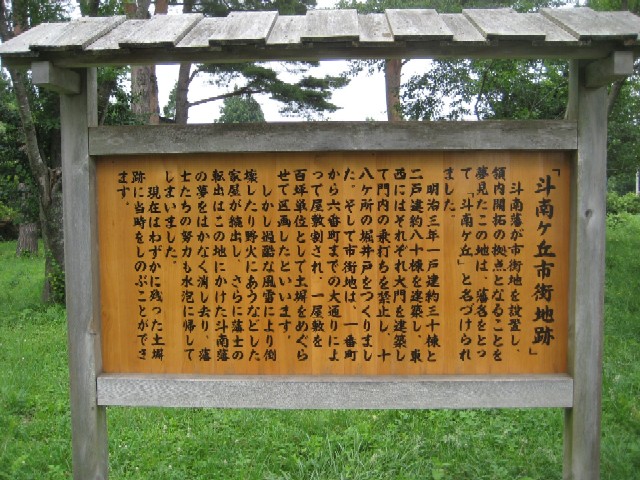 「斗南ヶ丘市街地跡」
斗南藩が市街地を設置し、
領内開拓の拠点となることを
夢見たこの地は、藩名をとっ
て「斗南ヶ丘」と名づけられ
ました。
明治三年一戸建約三十棟と
二戸建約八十棟を建築し、東
西にはそれぞれ大門を建築し
て門内の乗打ちを禁止し、十
八ヶ所の堀井戸をつくりまし
た。そして市街地は、一番町
から六番町までの大通りによ
って屋敷割され、一屋敷を
百坪単位として土塀をめぐら
せて区画したといいます。
しかし過酷な風雪により倒
壊したり野火にあうなどした
家屋が続出し、さらに藩士の
転出はこの地にかけた斗南藩
の夢をはかなく消し去り、藩
士たちの努力も水泡に帰して
しまいました。
現在はわずかに残った土塀
跡に当時をしのぶことができ
ます。